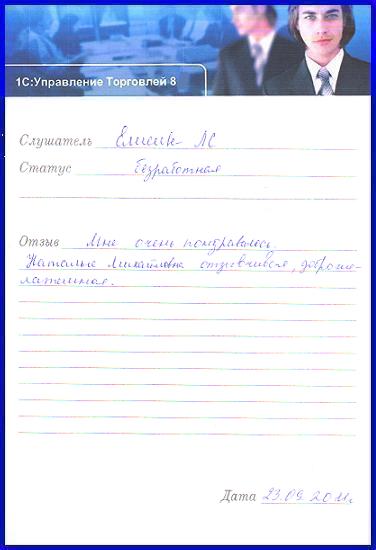 1С:Управление Торговлей 8
Слушатель ЛС
Статус Безработная
Отзыв Мне очень понравилось.
Наталья Михайловна отзывчивая, доброже-
лательная.
Дата 23.09.2011г